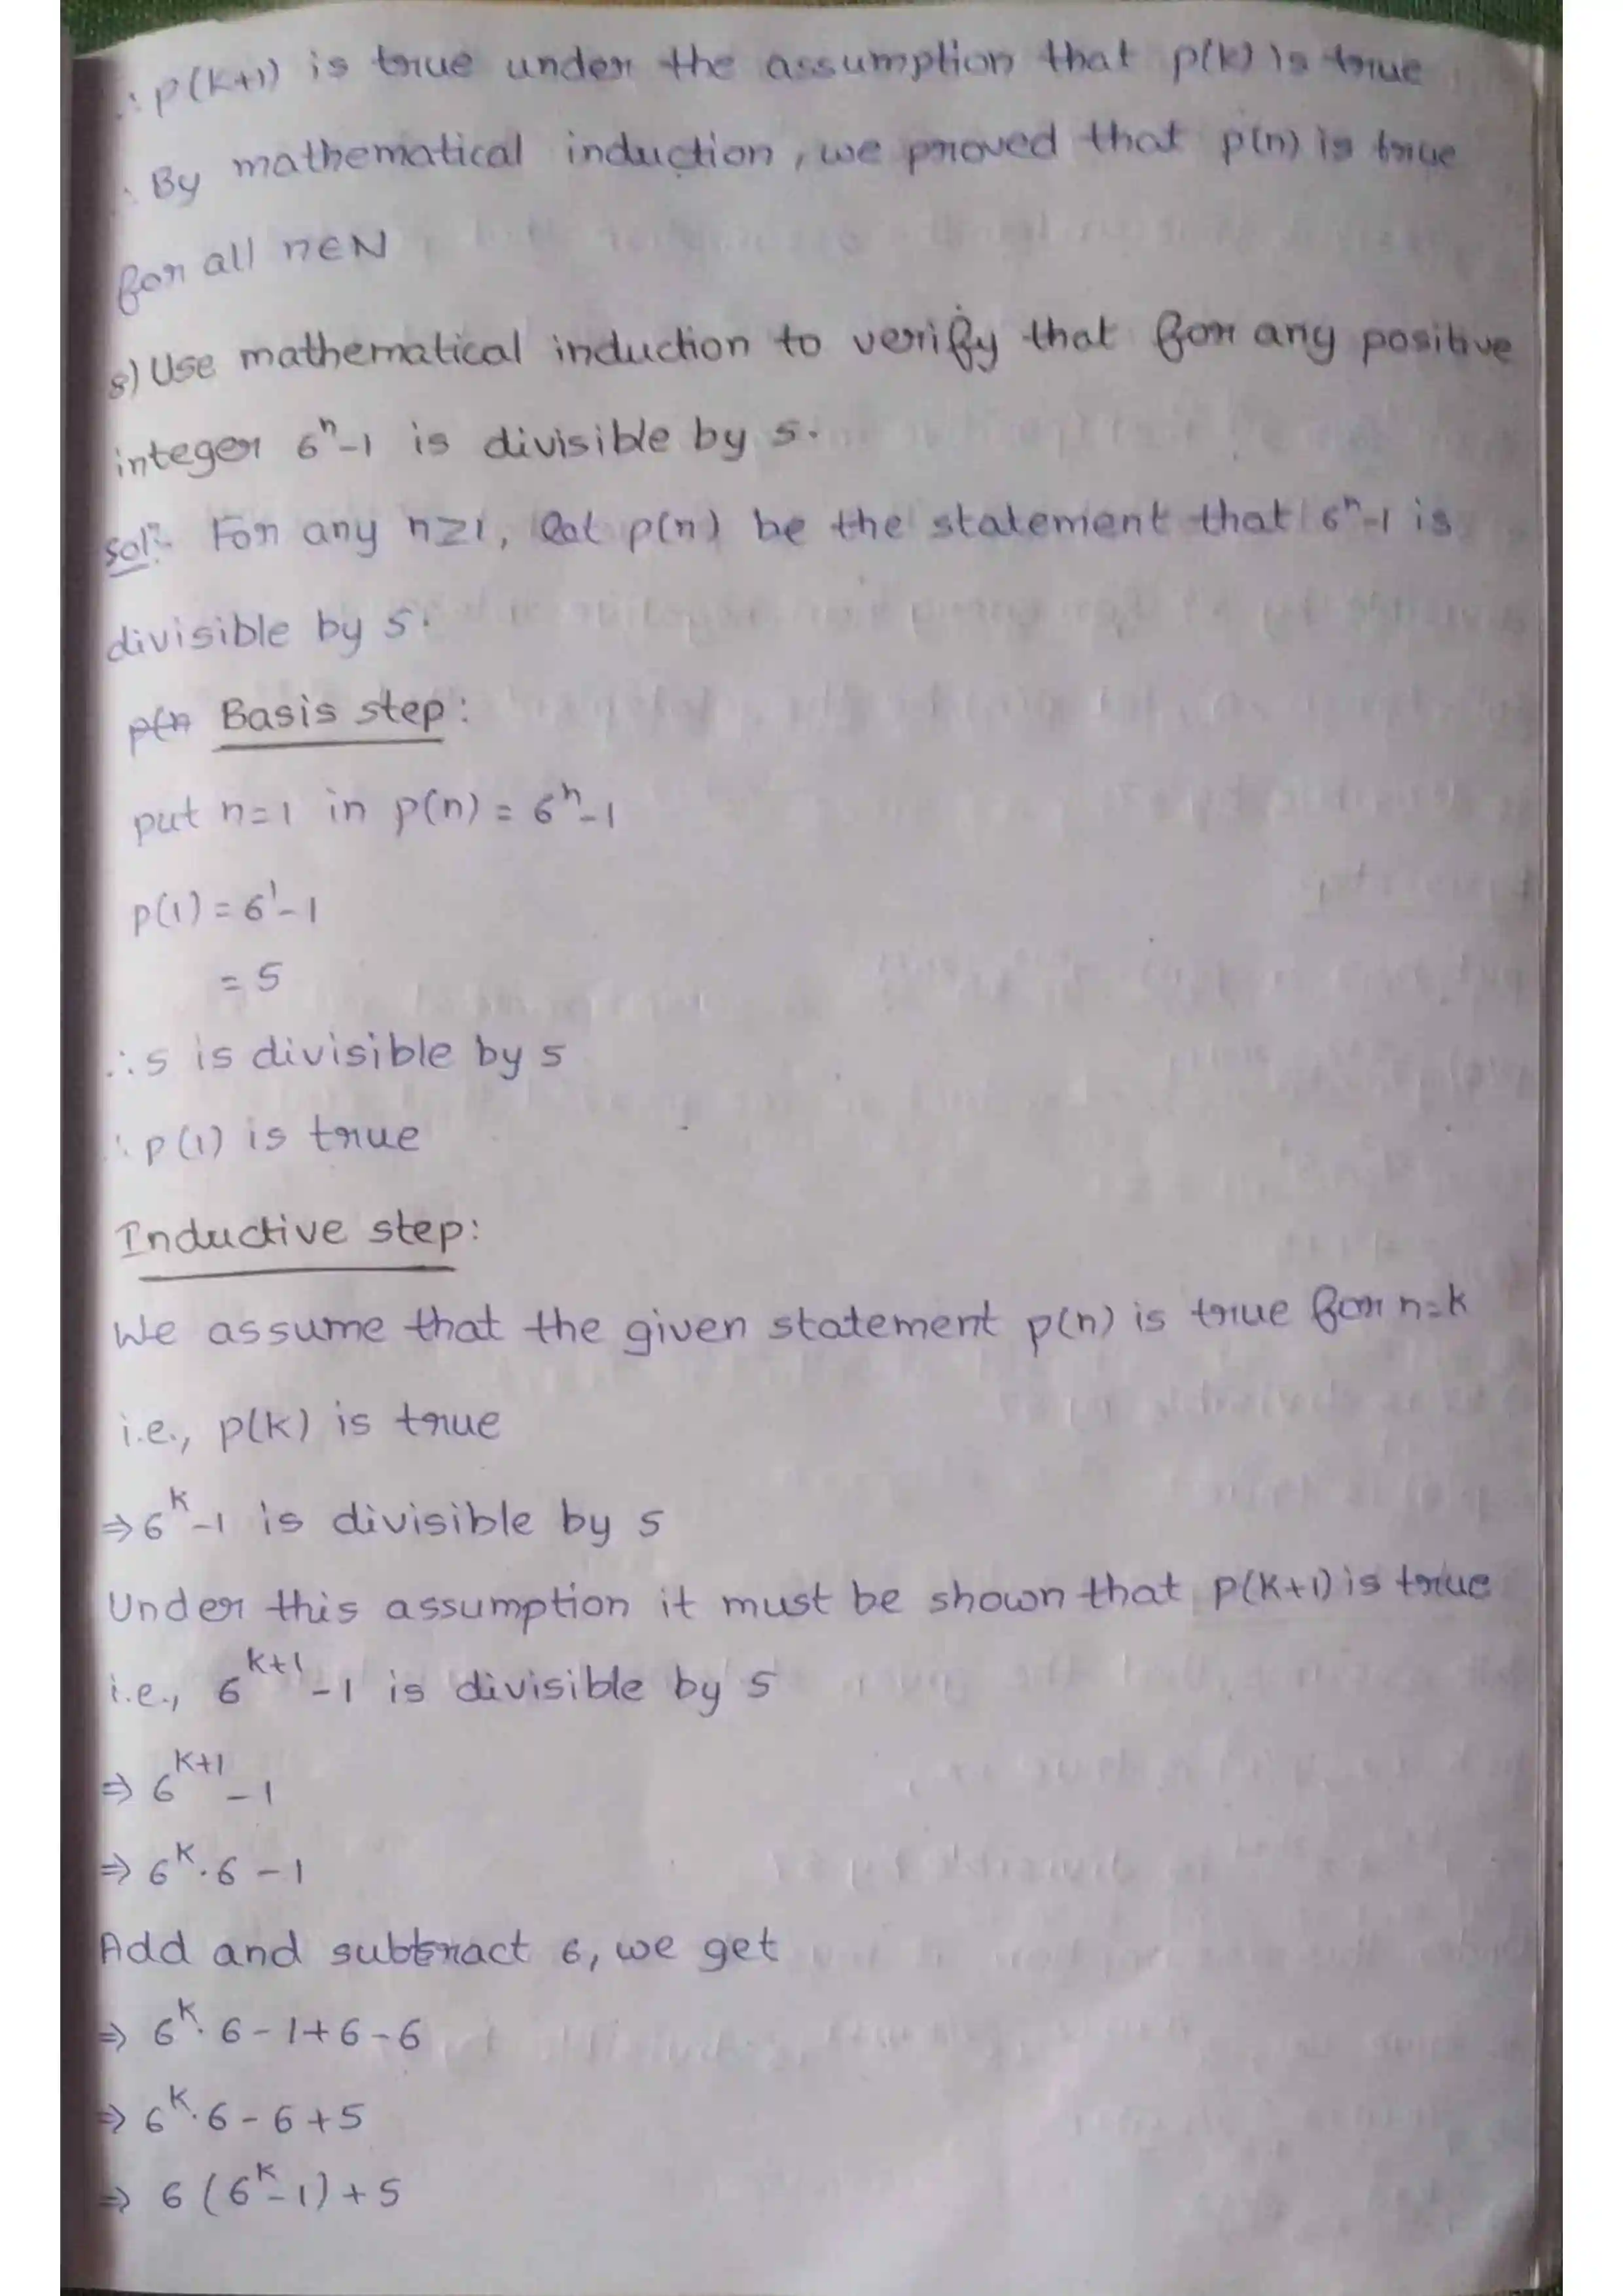 ∴ p(k+1) is true under the assumption that p(k) is true
∴ By mathematical induction, we proved that p(n) is true
for all n∈N
8) Use mathematical induction to verify that for any positive
integer 6ⁿ-1 is divisible by 5.
Solⁿ:- For any n≥1, let p(n) be the statement that 6ⁿ-1 is
divisible by 5.
p(n Basis step:
put n=1 in p(n) = 6ⁿ-1
p(1) = 6¹-1
= 5
∴ 5 is divisible by 5
∴ p(1) is true
Inductive step:
We assume that the given statement p(n) is true for n=k
i.e., p(k) is true
⇒ 6ᵏ-1 is divisible by 5
Under this assumption it must be shown that p(k+1) is true
i.e., 6ᵏ⁺¹ -1 is divisible by 5
⇒ 6ᵏ⁺¹ -1
⇒ 6ᵏ.6 -1
Add and subtract 6, we get
⇒ 6ᵏ.6-1+6-6
⇒ 6ᵏ.6-6+5
⇒ 6(6ᵏ-1)+5